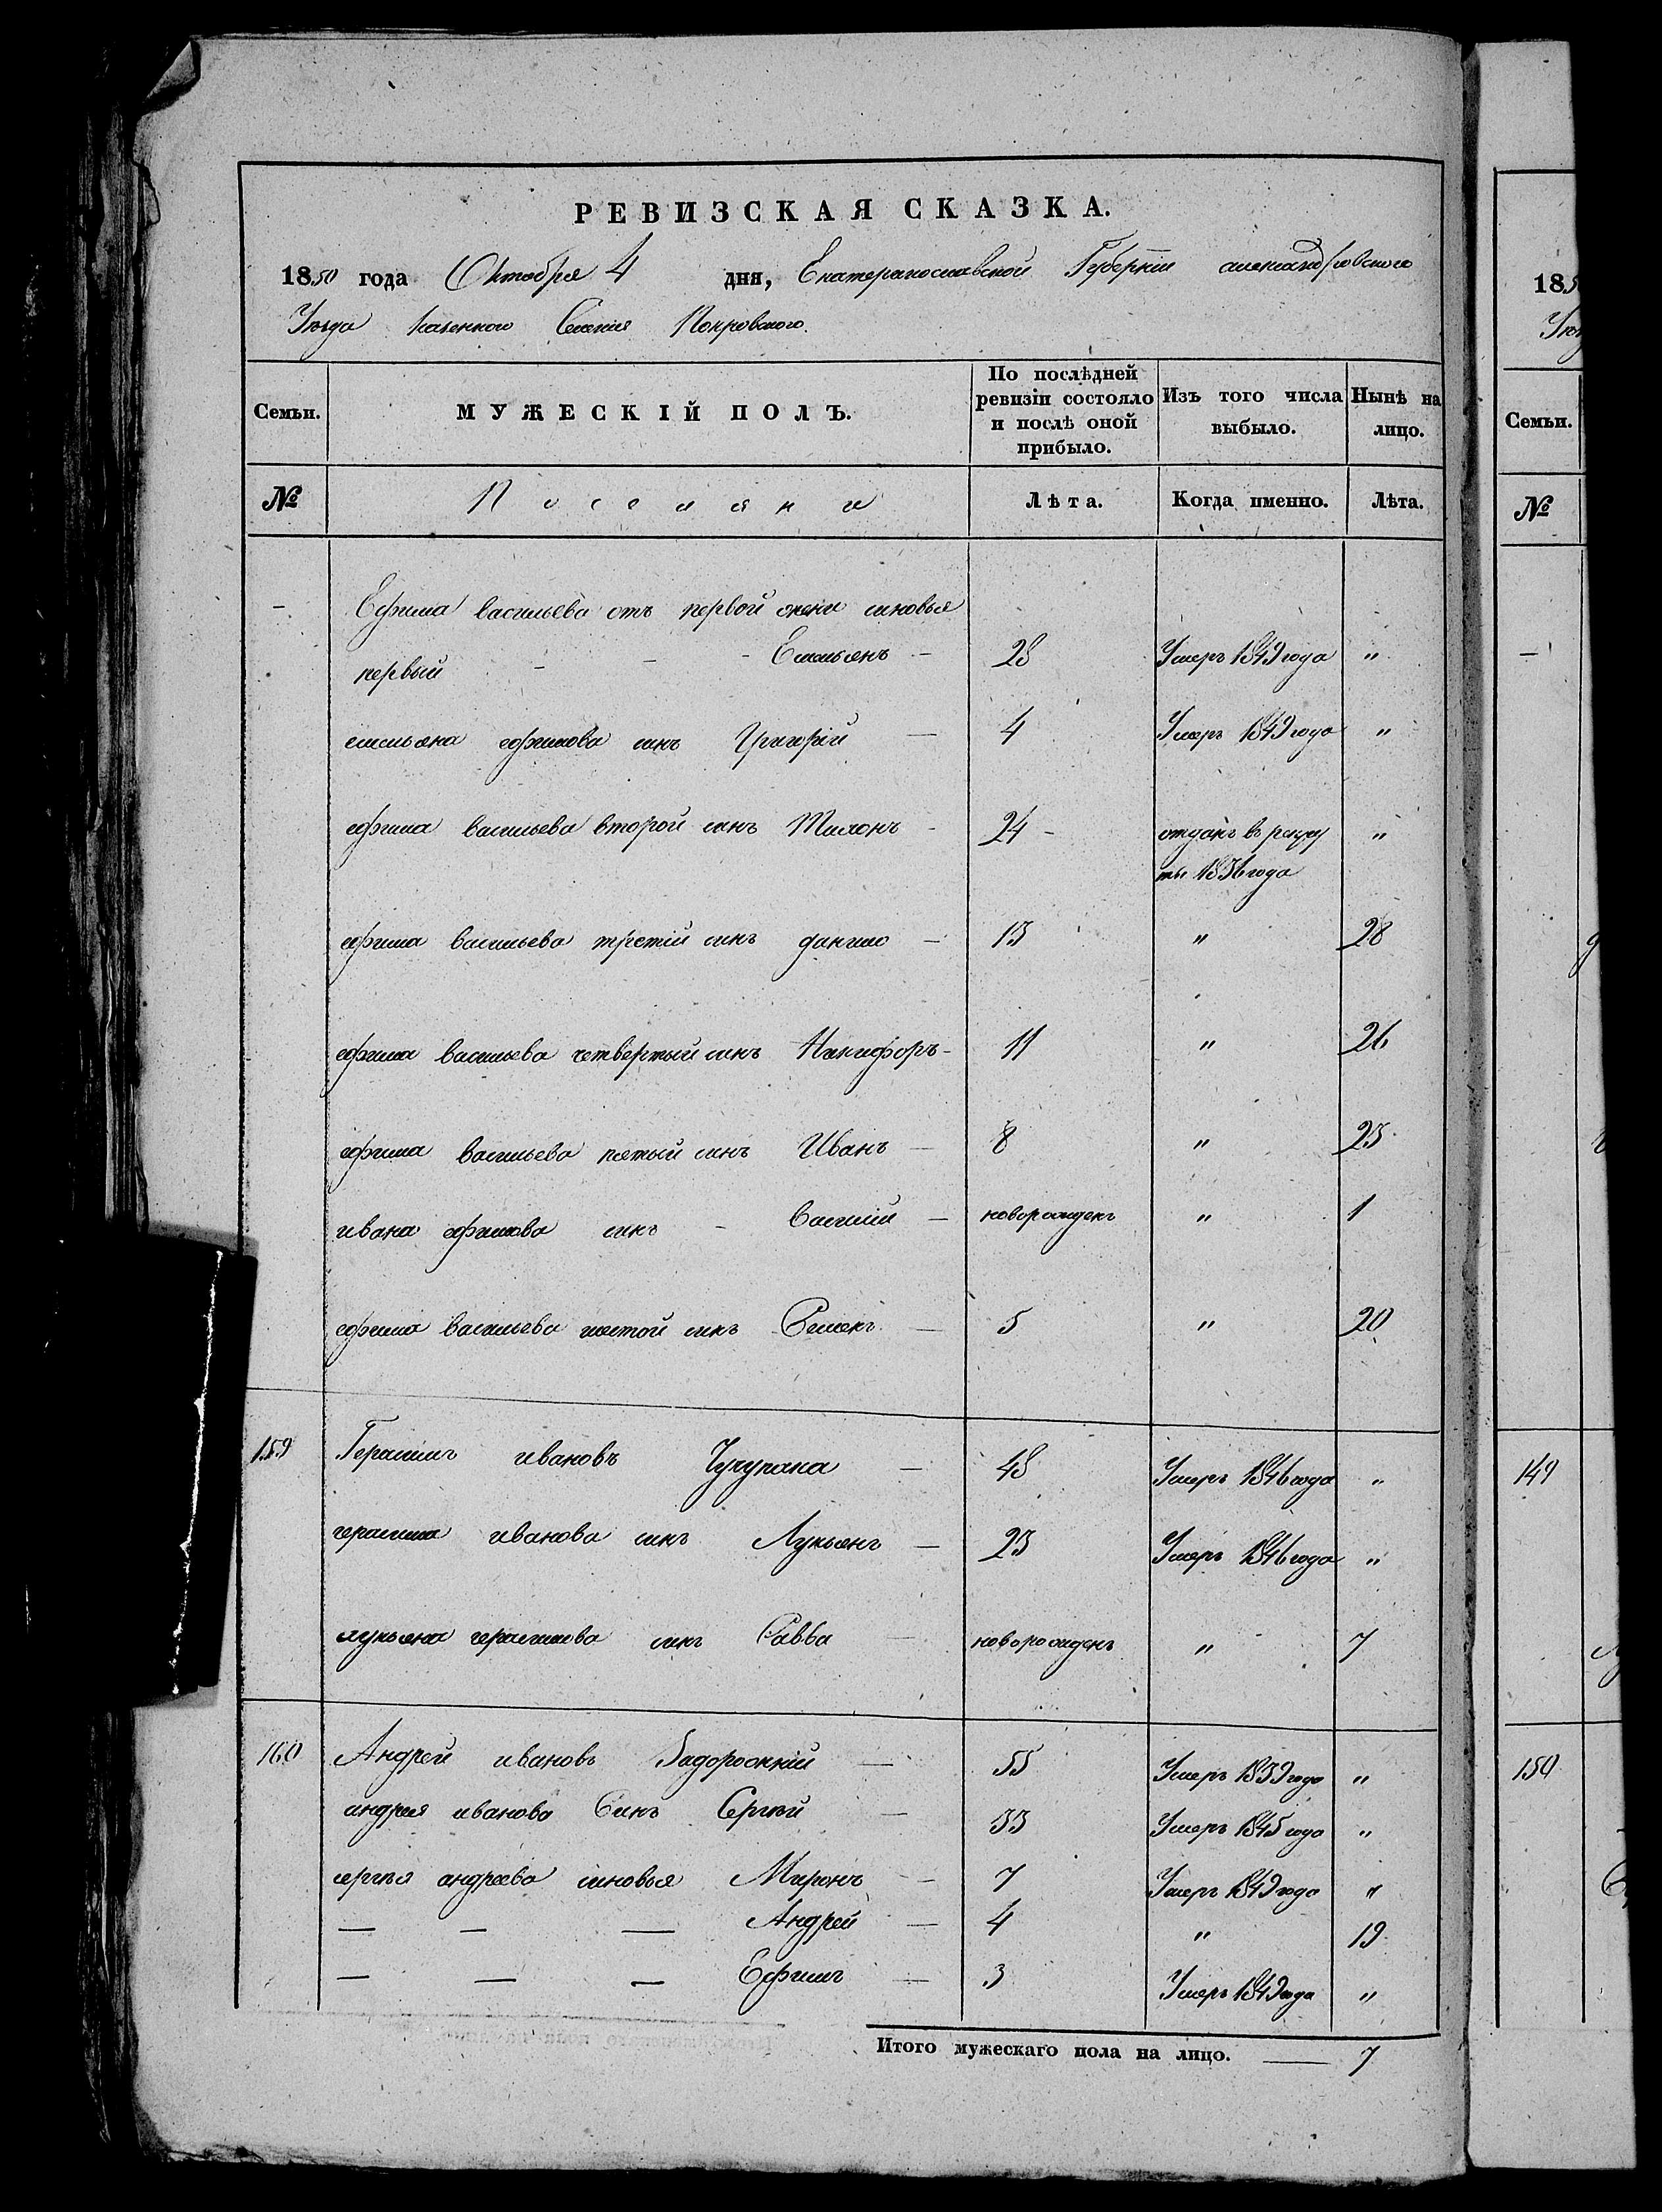 РЕВИЗСКАЯ СКАЗКА.
1850 года Октября 4 дня, Екатеринославской Губерніи александровского
Уезда казенного Селенія Покровского.
Семьи. МУЖЕСКІЙ ПОЛЪ. По послѣдней ревизіи состояло и послѣ оной прибыло. Изъ того числа выбыло. Нынѣ на лицо.
№ Поселяни Лѣта. Когда именно. Лѣта.
- Ефима васильева отъ первой жени синовья
первый - - - Емильянъ - 28 Умеръ 1849 года "
емильяна ефимова синъ Григорій - 4 Умеръ 1849 года "
ефима васильева второй синъ Тихонъ - 24 - отданъ в рекру
ты 1836 года "
ефима васильева третій синъ данило - 13 " 28
ефима васильева четвертый синъ Никифоръ - 11 " 26
ефима васильева пятый синъ Иванъ - 8 " 23
ивана ефимова синъ - Василий - новорожденъ " 1
ефима васильева шестой синъ Семенъ - 5 " 20
159 Герасимъ ивановъ Чучупака - 48 Умеръ 1846 года "
герасима иванова синъ Лукьянъ - 23 Умеръ 1846 года "
лукьяна герасимова синъ Савва - новорожденъ " 7
160 Андрей ивановъ - 55 Умеръ 1839 года "
андрея иванова Синъ Сергѣй - 33 Умеръ 1845 года "
сергѣя андреева синовья Миронъ - 7 Умеръ 1849 года "
— — — Андрей - 4 " 19
— — — Ефимъ - 3 Умеръ 1849 года "
Итого мужескаго пола на лицо. — 7
185
Семьи.
№
-
149
150